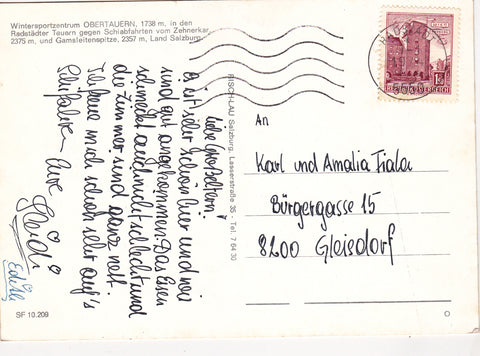 Wintersportzentrum OBERTAUERN, 1738 m, in den
Radstädter Tauern gegen Schiabfahrten vom Zehnerkar
2375 m, und Gamsleitenspitze, 2357 m, Land Salzburg
Liebe Großeltern!
es ist sehr schön hier und wir
sind gut angekommen. Das Essen
schmeckt auch nicht schlecht und
die Zimmer sind ganz nett.
Ich freue mich schon sehr auf's
Schifahren. Eure
Heidi
Edith
RISCH-LAU Salzburg, Lasserstraße 35 - Tel. 7 64 30
RADSTADT
5550
1.50
REPUBLIK ÖSTERREICH
An
Karl und Amalia Fiala
Bürgergasse 15
8200 Gleisdorf
SF 10.209